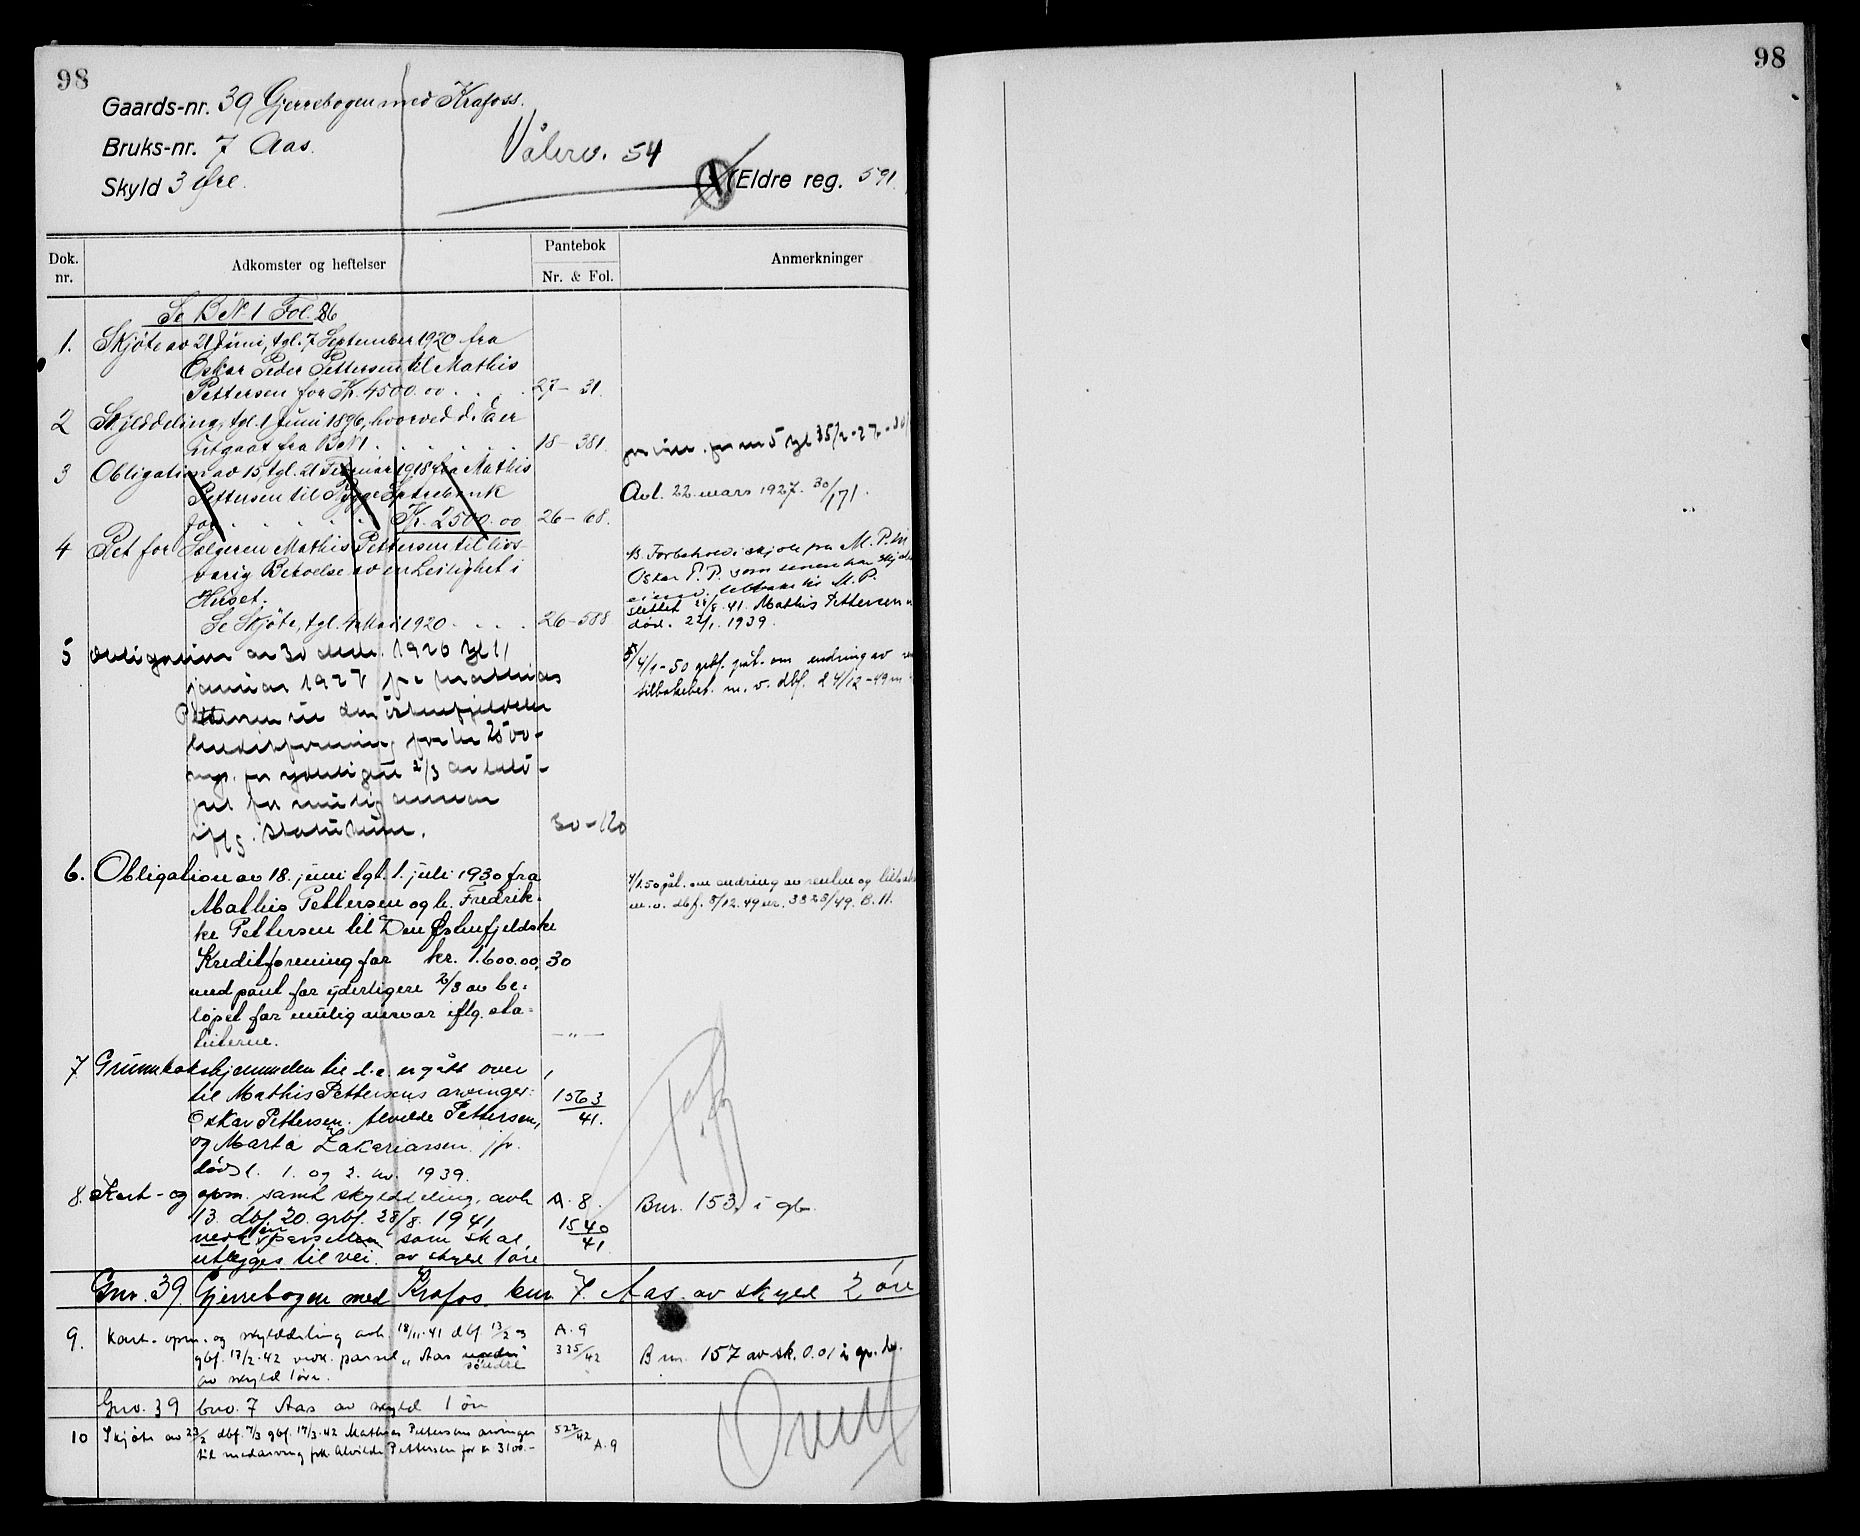 98
Gaards-nr. 39 Gjerrebogen med Krafoss.
Bruks-nr. 7 Aas.
Skyld 3 Øre.
Vålerv. 54
Eldre reg. 591.
Dok. nr.
Adkomster og heftelser
Pantebok
Nr. & Fol.
Anmerkninger
Se BN 1 Fol. 86
1. Skjøte av 21 Juni, tgl. 7 September 1920 fra
Oskar Peder Pettersen til Mathis
Pettersen for Kr. 4500.00 . . . 27 – 31.
2 Skylddeling, tgl. 1 Juni 1896, hvorved d. E er
utgaat fra BN 1 . . . . . 18 – 381.
3 Obligation av 15, tgl. 21 Februar 1918 fra Mathis
Pettersen til Rygge Sparebank
for . . . . . Kr. 2500.00 26 – 68.
Avl. 22 mars 1927. 30/171.
4 Ret for Sælgeren Mathis Pettersen til livs-
varig Beboelse av en Leilighet i
Huset.
Se Skjøte, tgl. 4 Mai 1920 . . . . 26 – 588
N. Forbehold i skjøte fra M. P. til
Oskar P. P. som senere har
M. P.
slettet 28/8. 41. Mathis Pettersen
død. 22/1. 1939.
5 Obligation av 30 desbr. 1926 tgl 11
januar 1927 fra Mathias
Pettersen til den østenfjeldske
kreditforening for kr 2500-
for yderligere 2/3 av belø-
pet for mulig ansvar
iflg. statutene. 30 – 120
5/ 4/1-50 grbf. påt. om endring av
tilbakebet. m. v. dbf. d 4/12-49
6. Obligation av 18. juni tgl. 1. juli 1930 fra
Mathis Pettersen og h. Fredrik-
ke Pettersen til Den Østenfjeldske
Kreditforening for kr. 1.600.00, 30
med pant for yderligere 2/3 av be-
løpet for mulig ansvar iflg. sta-
tuterne. — „ —
4/1.50 påt. om endring av renten og
m. v. dbf. 5/12. 49 nr. 3323/49. B. 11.
7 Grunnbokshjemmelen til d.e. er gått over
til Mathis Pettersens arvinger: 1563/41.
Oskar Pettersen, Alvilde Pettersen,
og Marta Zakariassen. jfr.
døds l. 1. og 2. nv. 1939.
8. Kart- og opm. samt skylddeling, avh A. 8.
13. dbf. 20. grbf. 28/8. 1941 1540/41
vedk en parsellen som skal
utlegges til vei. av skyld 1 øre
Bnr. 153. i gb.
Gnr. 39. Gjerrebogen med Krafos. bnr. 7. Aas. av skyld 2 øre
9. Kart- opm. og skylddeling avh. 18/11-41 dbf 13/2 og A. 9
gbf. 17/2-42 vedk. parsel „Aas søndre" 335/42
av skyld 1 øre.
Bnr. 157 av sk. 0.01 i gr. bn.
Gnr. 39 bnr. 7 Aas av skyld 1 øre
10 Skjøte av 23/2 dbf. 7/3 gbf. 17/3-42 Mathias Pettersens arvinger 522/42
til medarving frk. Alvilde Pettersen for kr 3100.- A. 9
Overf
98